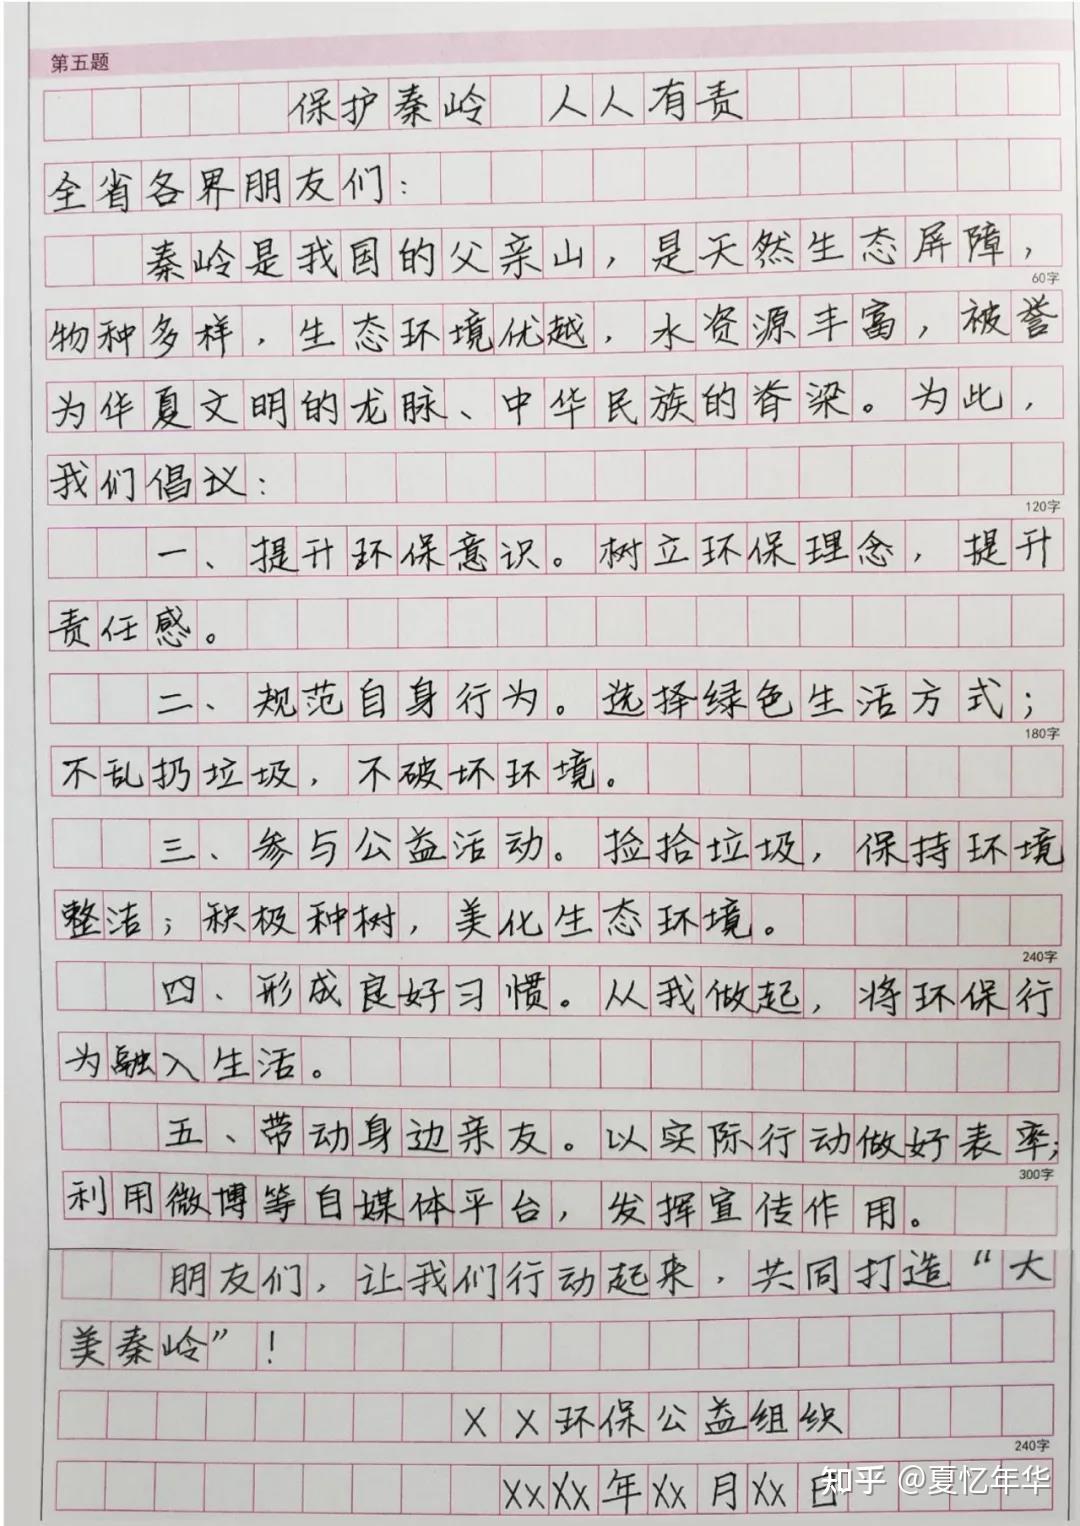 第五题
保护秦岭 人人有责
全省各界朋友们：
秦岭是我国的父亲山，是天然生态屏障，
60字
物种多样，生态环境优越，水资源丰富，被誉
为华夏文明的龙脉、中华民族的脊梁。为此，
我们倡议：
120字
一、提升环保意识。树立环保理念，提升
责任感。
二、规范自身行为。选择绿色生活方式；
180字
不乱扔垃圾，不破坏环境。
三、参与公益活动。捡拾垃圾，保持环境
整洁；积极种树，美化生态环境。
240字
四、形成良好习惯。从我做起，将环保行
为融入生活。
五、带动身边亲友。以实际行动做好表率；
300字
利用微博等自媒体平台，发挥宣传作用。
朋友们，让我们行动起来，共同打造“大
美秦岭”！
XX环保公益组织
240字
XXXX年XX月XX日
知乎 @夏忆年华